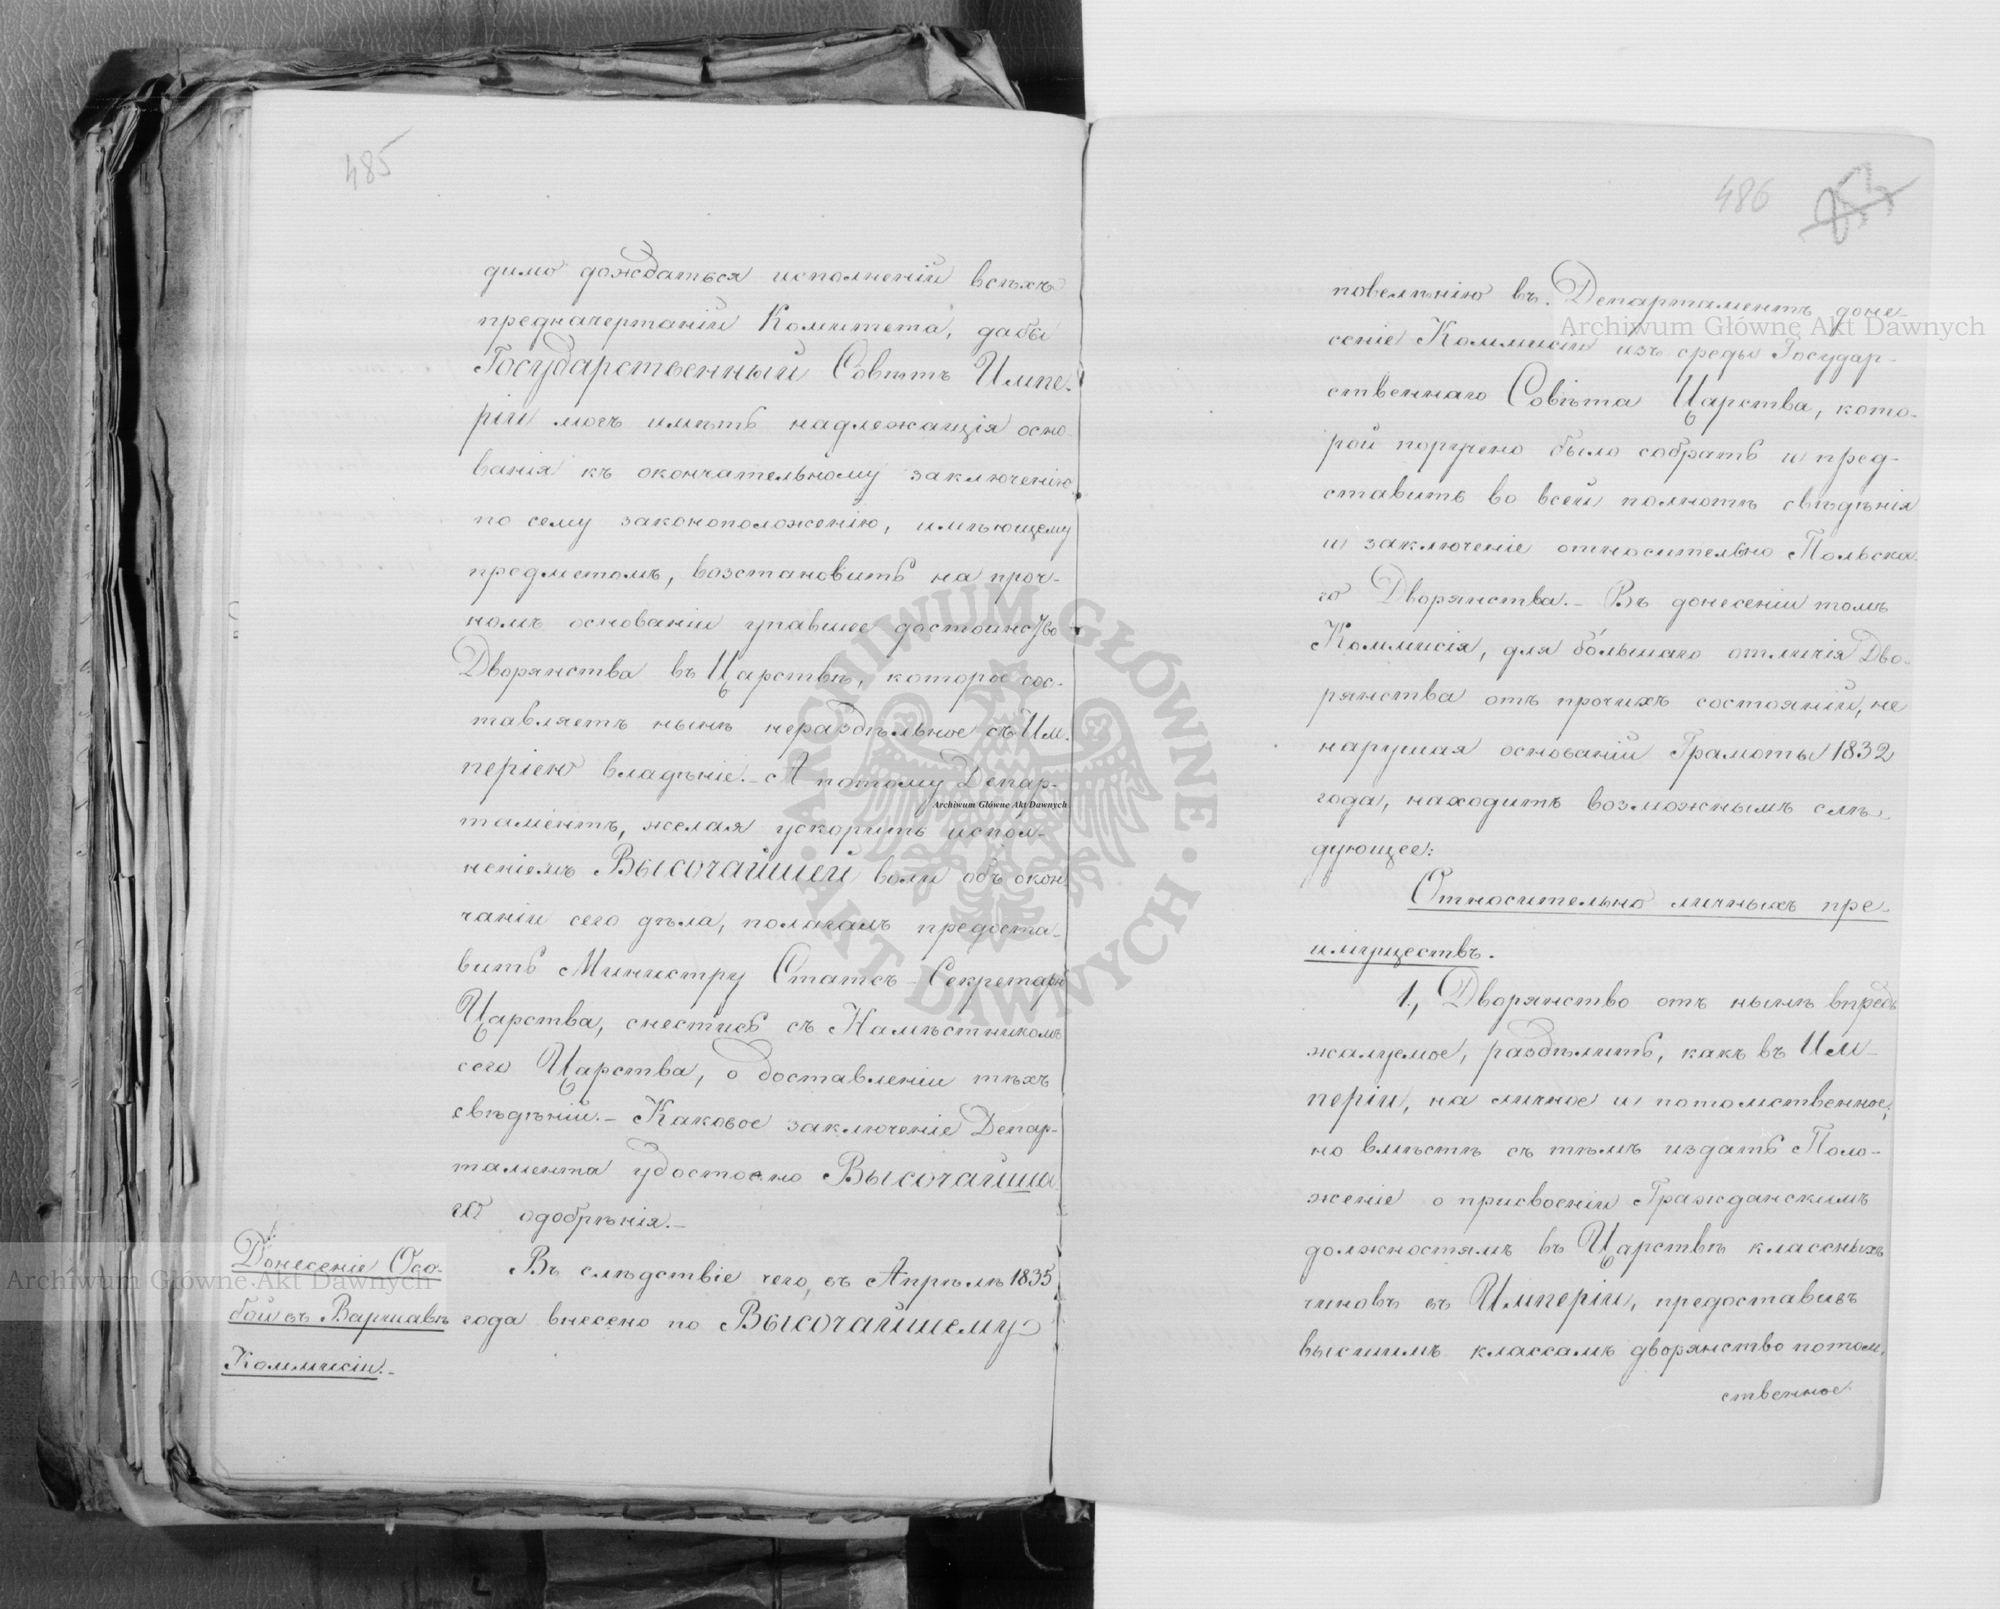 485
димо дождаться исполненiи всѣхъ
предначертанiи Комитета, дабы
Государственный Совѣтъ Импе-
рiи могъ имѣть надлежащiя осно-
ванiя къ окончательному заключенiю
по сему законоположенiю, имѣющему
предметомъ, возстановить на проч-
номъ основанiи упавшее достоинство
Дворянства въ Царствѣ, которое сос-
тавляетъ нынѣ нераздѣльное съ Им-
перiею владѣнiе.- А потому Депар-
таментъ, желая ускорить испол-
ненiемъ Высочайшей воли объ окон
чанiи сего дѣла, полагалъ предоста-
вить Министру Статсъ-Секретарю
Царства, снестись съ Намѣстникомъ
сего Царства, о доставленiи тѣхъ
свѣдѣнiй.- Каковое заключенiе Депар-
тамента удостоено Высочайша
го одобрѣнiя.-
Донесенiе Осо-
бой въ Варшавѣ
Коммисiи.-
Въ слѣдствiе чего, въ Апрѣлѣ 1835
года внесено по Высочайшему
486
повелѣнiю въ Департаментъ доне-
сенiе Коммисiи изъ среды Государ-
ственнаго Совѣта Царства, кото-
рой поручено было собрать и пред-
ставить во всей полнотѣ свѣдѣнiя
и заключенiе относительно Польска-
го Дворянства.- Въ донесенiи томъ
Коммисiя, для бо́льшаго отличiя Дво-
рянства отъ прочихъ состоянiй, не
нарушая основанiй Грамоты 1832
года, находитъ возможнымъ слѣ-
дующее:
Относительно личныхъ пре-
имуществъ.
1., Дворянство отъ нынѣ впредь
жалуемое, раздѣлить, какъ въ Им-
перiи, на личное и потомственное;
но вмѣстѣ съ тѣмъ издать Поло-
женiе о присвоенiи Гражданскимъ
должностямъ въ Царствѣ классныхъ
чиновъ въ Имперiи, предоставивъ
высшимъ классамъ дворянство потом-
ственное
Archiwum Główne Akt Dawnych
Archiwum Główne Akt Dawnych
Archiwum Główne Akt Dawnych
ARCHIWUM GŁÓWNE · AKT DAWNYCH ·